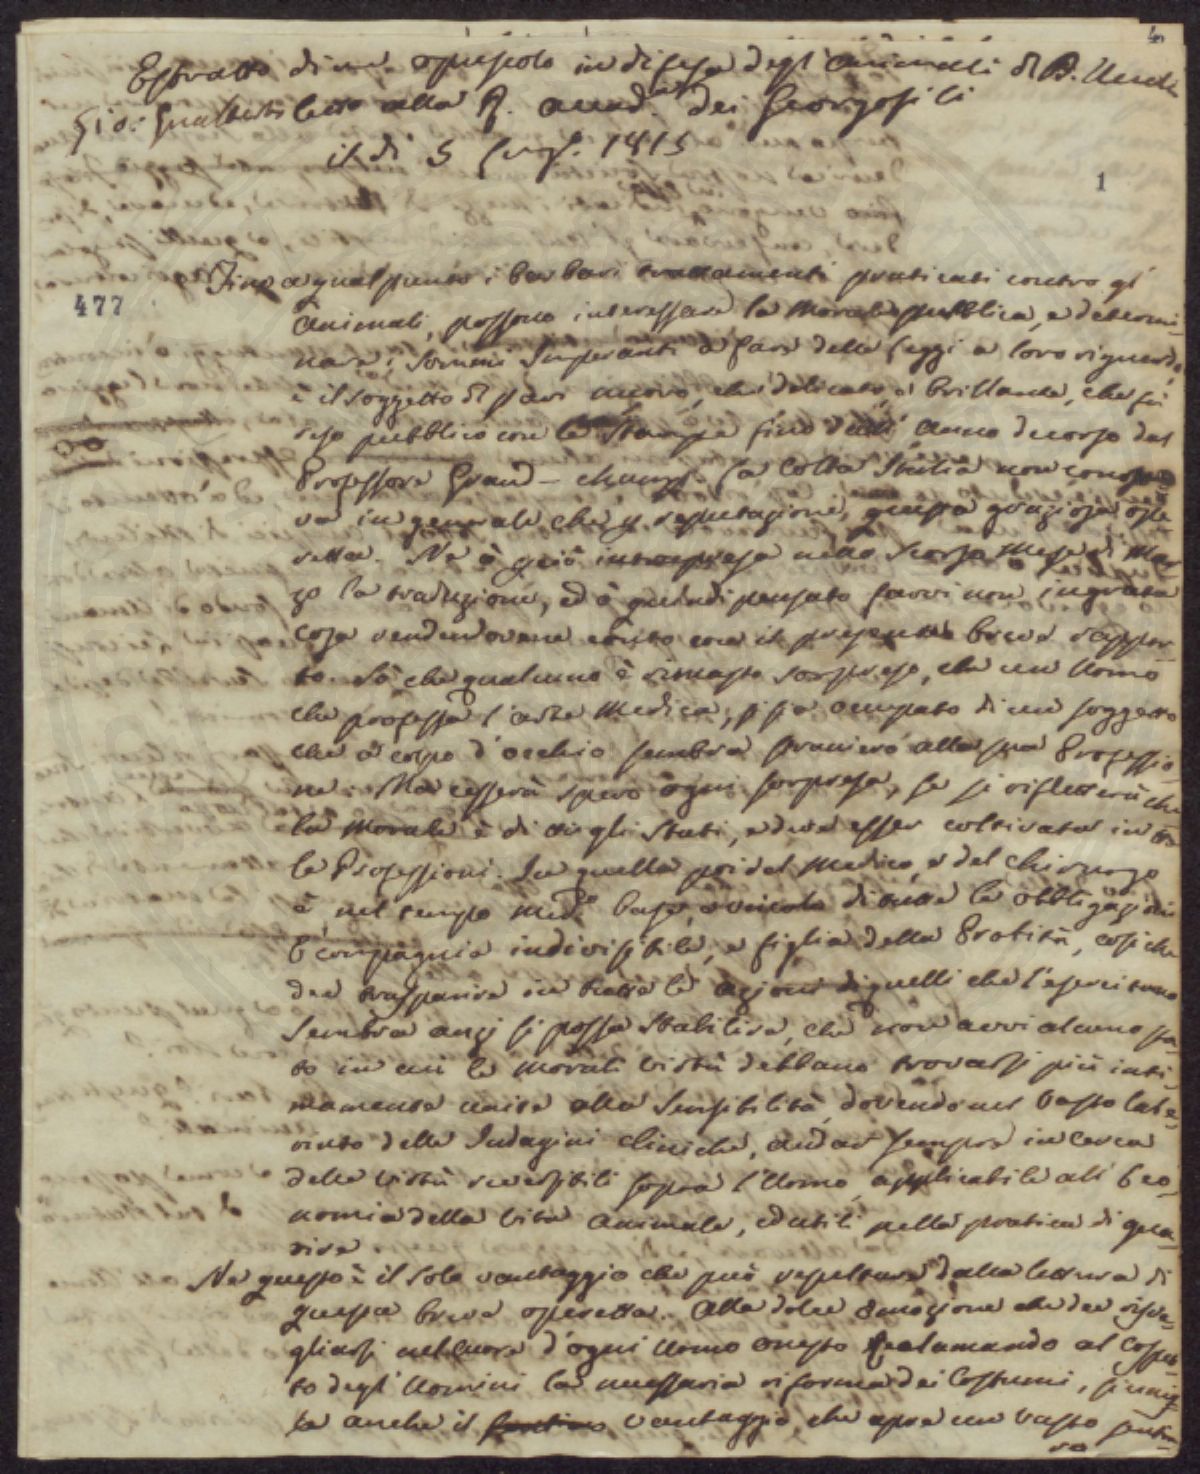 4
Estratto di un' opuscolo in difesa degl' animali di B.
Gio: Gualberto letto alla R. Accad.ª dei Georgofili
il dì 5 Lugl. 1815
1
Fino a qual punto i barbari trattamenti praticati contro gl'
477
animali, possono interessare la morale pubblica, e determi-
nare i sommi Imperanti a fare delle Leggi a loro riguardo,
è il soggetto di pari nuovo, che delicato, e brillante, che fù
reso pubblico con le Stampe fino dall' anno decorso dal
Professore Grand-champ. La Colta Italia non conosce-
va in generale che di reputazione, questa graziosa ope-
retta. Ne ò già intrapresa nello scorso mese di Mar-
zo la traduzione, ed ò quindi pensato farvi non ingrata
cosa rendendovene conto con il presente breve rappor-
to. Sò che qualcuno è rimasto sorpreso, che un Uomo
che professa l'arte Medica, si sia occupato di un soggetto
che a colpo d'occhio sembra straniero alla sua Professio-
ne. Ma cesserà spero ogni sorpresa, se si rifletterà che
la morale è di tutti gli Stati, e deve esser coltivata in tutte
le Professioni. In quella poi del Medico, e del Chirurgo
è nel tempo med.º base, e vincolo di tutte le obbligazioni
È compagnia indivisibile, e figlia della Probità, cosiche
dee trasparire in tutte le azioni di quelli che l'esercitano
Sembra anzi si possa stabilire, che non avvi alcuno sta-
to in cui le morali virtù debbano trovarsi più inti-
mamente unite alla Sensibilità, dovendo nel vasto labe-
rinto delle Indagini cliniche, andar sempre in cerca
delle virtù reversibili sopra l'Uomo, applicabile all' Eco-
nomia della vita animale, ed utili nella pratica di gua-
rire
Ne questo è il solo vantaggio che può resultare dalla lettura di
questa breve operetta. Alla dolce emozione che dee risve-
gliarsi nel cuore d'ogni Uomo onesto reclamando al cospet-
to degl' Uomini la necessaria riforma dei Costumi,
anche il vantaggio, che apre un vasto